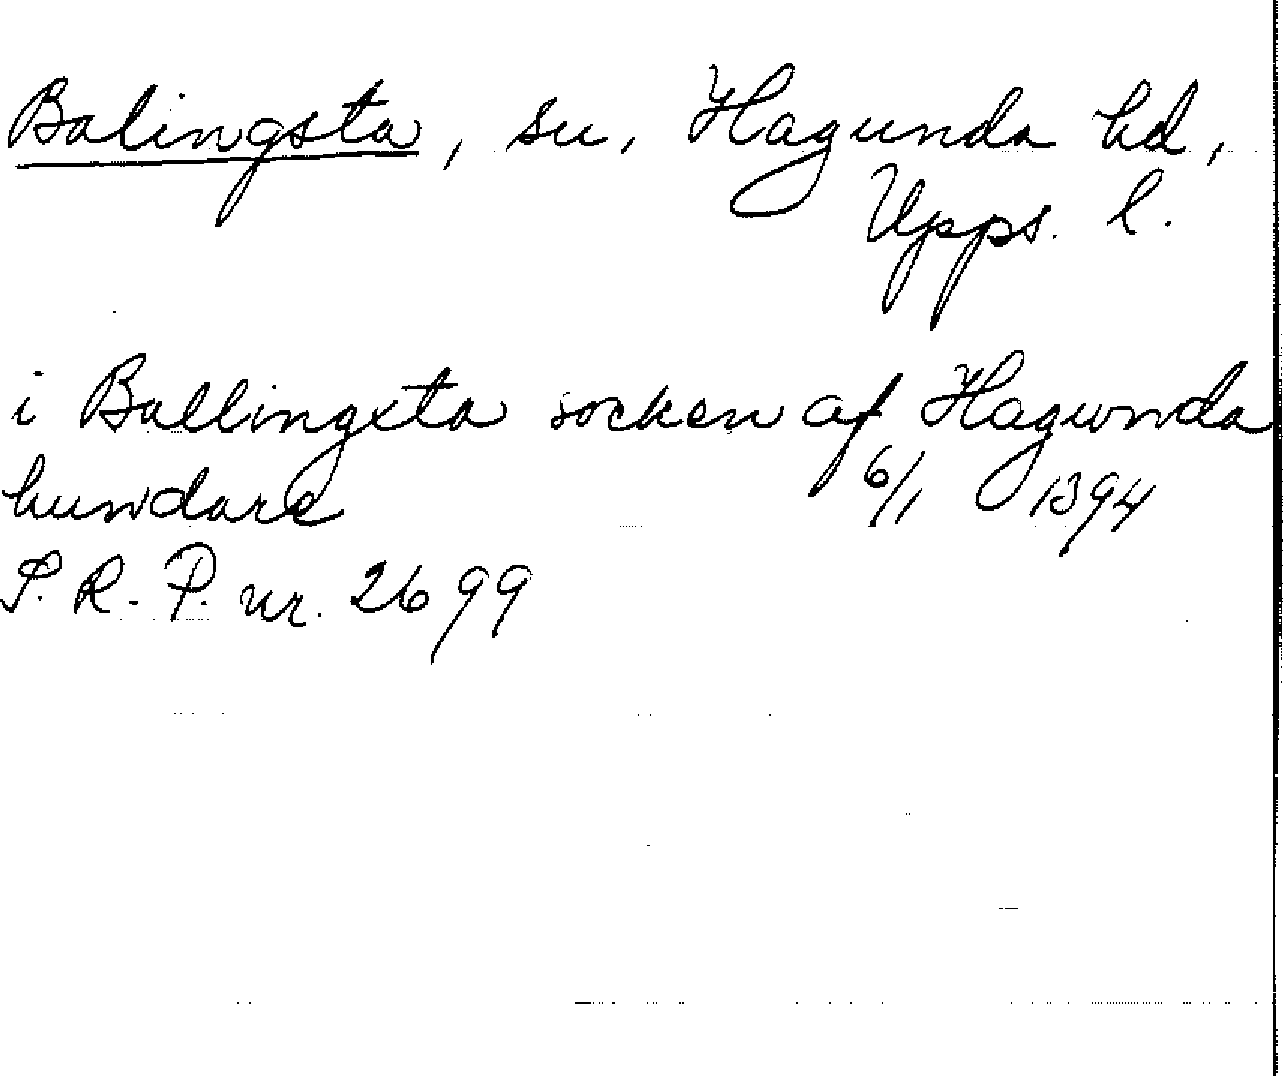 Balingsta, sn, Hagunda hd,
Upps. l.
i Ballingxta socken af Hagwnda
hwndare 6/1 1394
S. R. P. nr. 2699